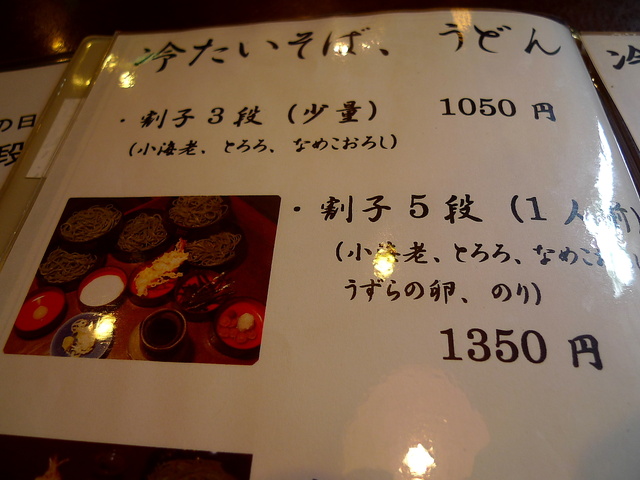 冷たいそば、うどん
・割子3段(少量) 1050円
(小海老、とろろ、なめこおろし)
・割子5段(1人前)
(小海老、とろろ、なめこ
うずらの卵、のり)
1350円
の日
段
冷